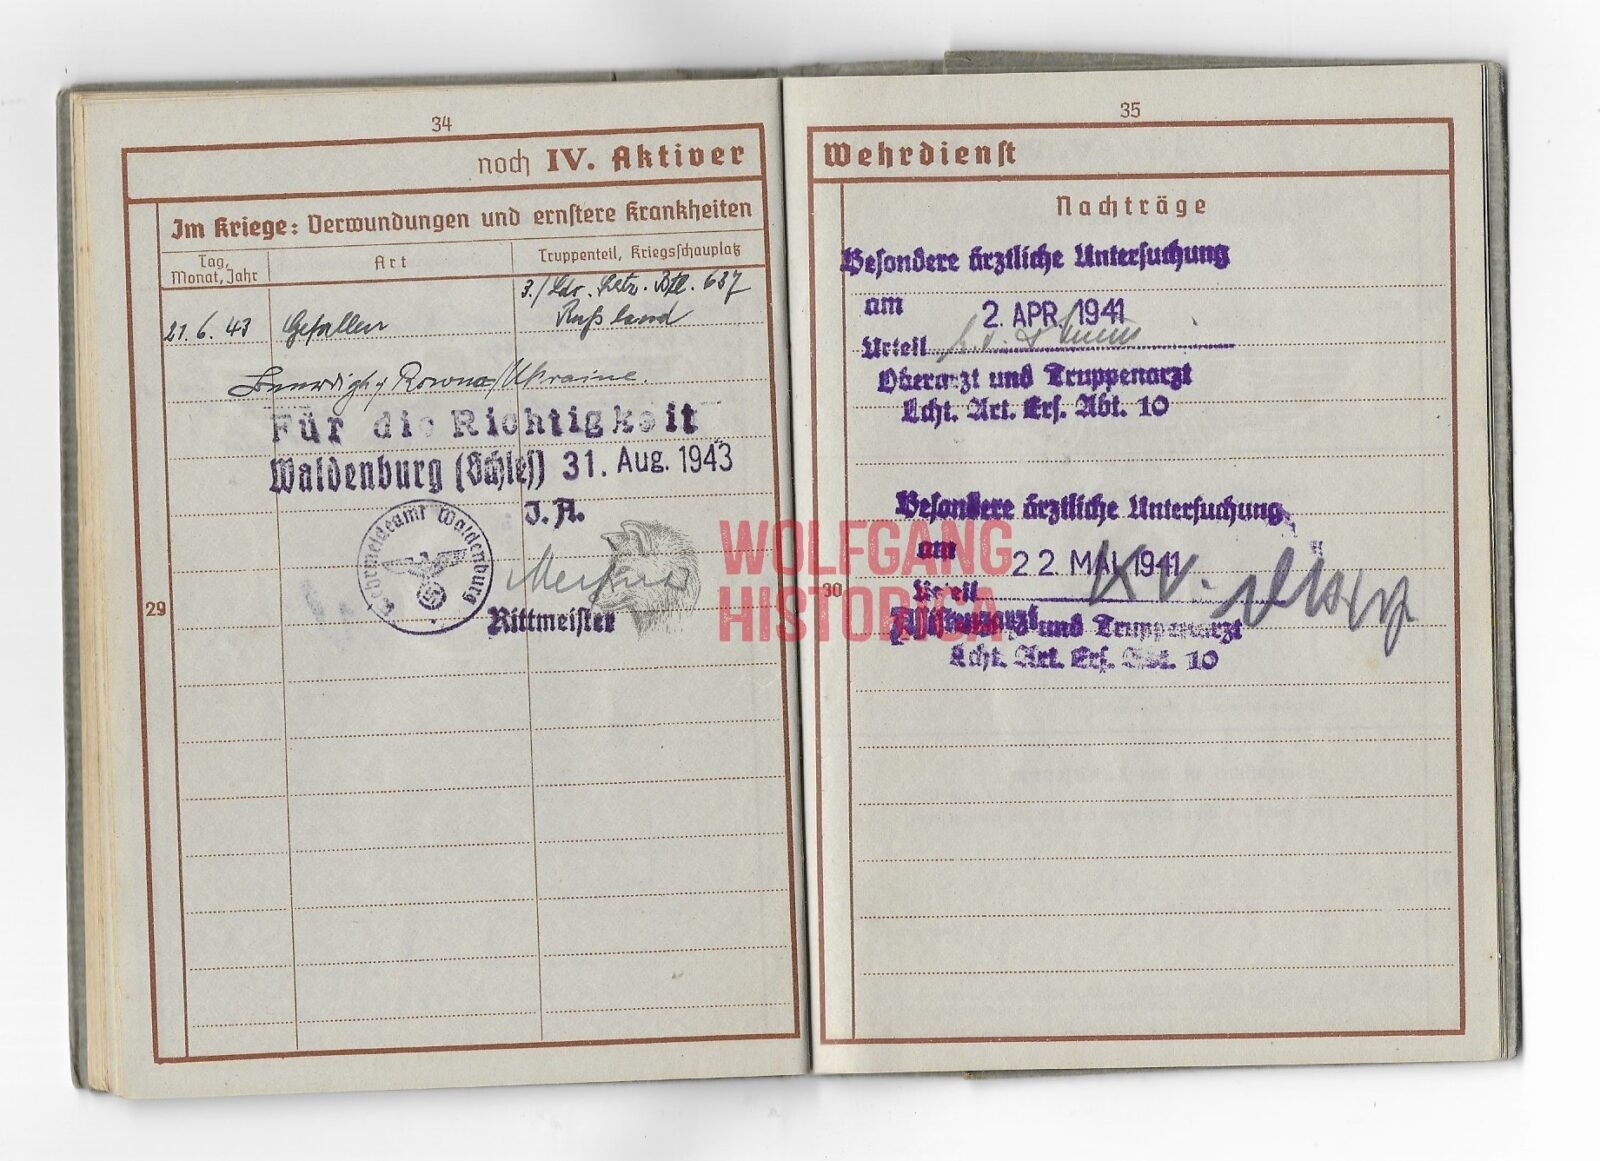 34
noch IV. Aktiver
Im Kriege: Verwundungen und ernstere Krankheiten
Tag, Monat, Jahr
Art
Truppenteil, Kriegsschauplatz
3./Lds. Btl. 637
21.6.43 Gefallen Rußland
Rowno/Ukraine.
Für die Richtigkeit
Waldenburg (Schles) 31. Aug. 1943
J. A.
Wehrmeldeamt Waldenburg
Rittmeister
29
35
Wehrdienst
Nachträge
Besondere ärztliche Untersuchung
am 2. APR. 1941
Urteil
Oberarzt und Truppenarzt
Lcht. Art. Ers. Abt. 10
Besondere ärztliche Untersuchung
am 22. MAI 1941
Urteil kv.
und Truppenarzt
Lcht. Art. Ers. Abt. 10
30
WOLFGANG
HISTORICA